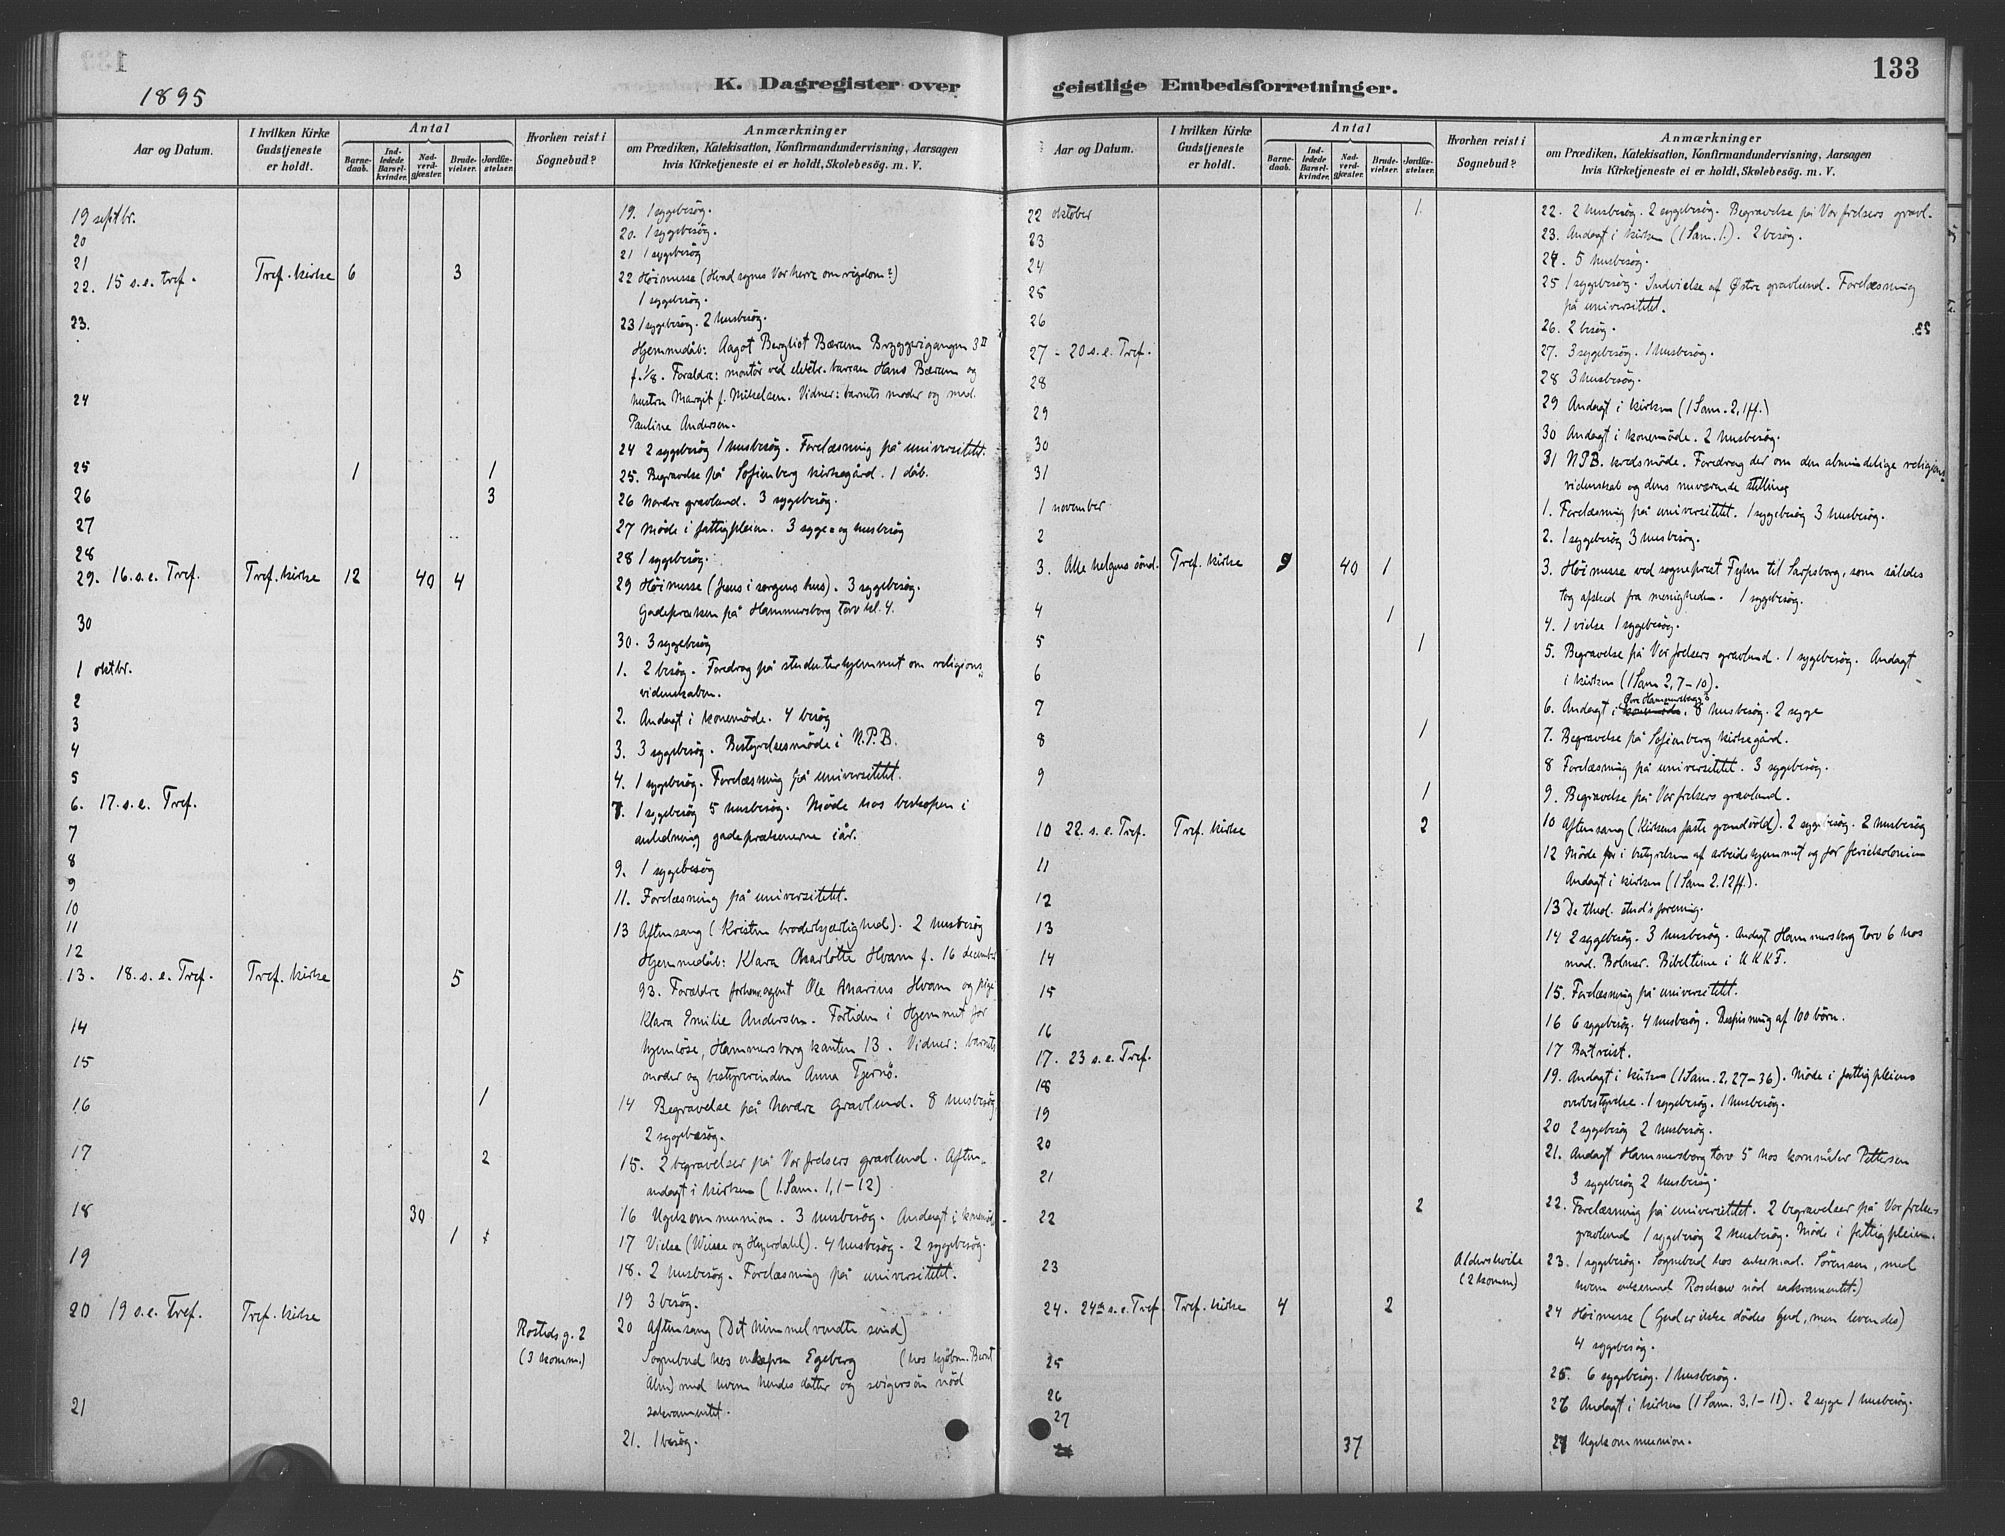 1895
K. Dagregister over
Aar og Datum.
I hvilken Kirke Gudstjeneste er holdt.
Antal
Barnedaab.
Indledede Barselkvinder.
Nadverdgjæster.
Brudevielser.
Jordfæstelser.
Hvorhen reist i Sognebud?
Anmærkninger
om Prædiken, Katekisation, Konfirmandundervisning, Aarsagen
hvis Kirketjeneste ei er holdt, Skolebesøg. m. V.
19 septbr. 19. 1 sygebesøg.
20 20. 1 sygebesøg.
21 21 1 sygebesøg
22. 15 s.e. tref. Tref. kirke 6 3 22 Höimesse (Hvad synes Vorherre om rigdom?)
1 sygebesøg.
23. 23 1 sygebesøg. 2 husbesøg.
Hjemmedåb: Aagot Bergliot Bærum Bryggerigangen 3 II
f. 1/8. Forældre: montør ved elektr. bureau Hans Bærum og
hustru Margit f. Mikelsen. Vidner: barnets moder og mad.
Pauline Andersen.
24 24 2 sygebesøg 1 husbesøg. Forelæsning på universitetet.
25 1 1 25. Begravelse på Sofienberg kirkegård. 1 dåb.
26 3 26 Nordre gravlund. 3 sygebesøg.
27 27 Møde i fattigpleien. 3 syge= og husbesøg
28 28 1 sygebesøg.
29. 16. s.e. Tref. Tref. kirke 12 40 4 29 Höimesse (Jesus i sorgens hus). 3 sygebesøg.
Gadepræken på Hammersborg torv kl. 4.
30 30. 3 sygebesøg
1 oktbr. 1. 2 besøg. Foredrag på studenterhjemmet om religions=
videnskaben.
2 2. Andagt i konemøde. 4 besøg
3 3. 3 sygebesøg. Bestyrelsesmøde i N.P.B.
4 4. 1 sygebesøg. Forelæsning på universitetet.
5
6. 17. s.e. Tref.
7 7. 1 sygebesøg 5 husbesøg. Møde hos biskopen i
anledning gadeprækenerne iår.
8
9 9. 1 sygebesøg
10
11 11. Forelæsning på universitetet.
12
13. 18. s.e. Tref. Tref. kirke 5 13 Aftensang (Kristen broderkjærlighed). 2 husbesøg
Hjemmedåb: Klara Charlotte Hvam f. 16 december
93. Forældre forhenv. agent Ole Marius Hvam og pige
Klara Emilie Andersen. Fortiden i Hjemmet for
hjemløse, Hammersborgkanten 13. Vidner: barnets
moder og bestyrerinden Anna Tjernø.
14 1 14 Begravelse på Nordre Gravlund. 8 husbesøg,
2 sygebesøg.
15 2 15. 2 begravelser på Vor frelsers gravlund. Aften=
andagt i kirken (1. Sam. 1,1-12)
16 30 16 Ugekommunion. 3 husbesøg. Andagt i konemøde
17 1 17 Vielse (Weisse og Heyerdahl). 4 husbesøg. 2 sygebesøg.
18 18. 2 husbesøg. Forelæsning på universitetet.
19 19 3 besøg.
20 19 s.e. Tref. Tref. kirke Rosteds g. 2 (3 komm.) 20 Aftensang (Det himmelvendte sind)
Sognebud hos enkefru Egeberg (hos kjøbm. Bernt
Alm) med hvem hendes datter og svigersøn nød
sakramentet.
21 21. 1 besøg.
133
geistlige Embedsforretninger.
Aar og Datum.
I hvilken Kirke Gudstjeneste er holdt.
Antal
Barnedaab.
Indledede Barselkvinder.
Nadverdgjæster.
Brudevielser.
Jordfæstelser.
Hvorhen reist i Sognebud?
Anmærkninger
om Prædiken, Katekisation, Konfirmandundervisning, Aarsagen
hvis Kirketjeneste ei er holdt, Skolebesøg. m. V.
22 oktober 1. 22. 2 husbesøg. 2 sygebesøg. Begravelse på Vor frelsers gravl.
23 23. Andagt i kirken (1 Sam. 1.). 2 besøg.
24 24. 5 husbesøg.
25 25 1 sygebesøg. Indvielse af Østre gravlund. Forelæsning
på universitetet.
26 26. 2 besøg.
27 - 20 s.e. Tref. 27. 3 sygebesøg. 1 husbesøg.
28 28 3 husbesøg.
29 29 Andagt i kirken (1 Sam. 2, 1ff.)
30 30 Andagt i konemøde. 2 husbesøg.
31 31 N.P.B. kredsmøde. Foredrag der om den almindelige religions=
videnskab og dens nuværende stilling
1 november 1. Forelæsning på universitetet. 1 sygebesøg 3 husbesøg.
2 2. 1 sygebesøg 3 husbesøg.
3. Alle helgens sönd. Tref. kirke 9 40 1 3. Höimesse ved sogneprest Fyhn til Sarpsborg, som således
tog afsked fra menigheden. 1 sygebesøg.
4 1 4. 1 vielse 1 sygebesøg.
5 1 5. Begravelse på Vor frelsers gravlund. 1 sygebesøg. Andagt
i kirken (1 Sam 2, 7-10).
6 6. Andagt i konemøde. 8 husbesøg. 2 syge
7 1 7. Begravelse på Sofienberg kirkegård.
8 8 Forelæsning på universitetet. 3 sygebesøg.
9 1 9. Begravelse på Vor frelsers gravlund.
10 22. s.e. Tref. Tref. kirke 2 10 Aftensang (Kirkens faste grundvold). 2 sygebesøg. 2 husbesøg
11
12 12 Møde i bestyrelsen af arbeidshjemmet og for feriekolonien
Andagt i kirken (1 Sam 2. 12ff.).
13 13 De theol. stud's forening.
14 14 2 sygebesøg. 3 husbesøg. Andagt Hammersborg torv 6 hos
mad. Bolner. Bibeltime i UKKF.
15 15. Forelæsning på universitetet.
16 16 6 sygebesøg. 4 husbesøg. Bespisning af 100 börn.
17. 23 s.e. Tref. 17 Bortreist.
18
19 19. Andagt i kirken (1 Sam. 2, 27-36). Møde i fattigpleiens
overbestyrelse. 1 sygebesøg. 1 husbesøg.
20 20 2 sygebesøg 2 husbesøg.
21 21. Andagt Hammersborg torv 5 hos kornmåler Pettersen
3 sygebesøg 2 husbesøg.
22 2 22. Forelæsning på universitetet. 2 begravelser på Vor frelsers
gravlund 1 sygebesøg 2 husbesøg. Møde i fattigpleien.
23 Aldershvile (2 komm) 23. 1 sygebesøg. Sognebud hos enkemad. Sörensen, med
hvem enkemad Roschew nød sakramentet.)
24. 24de s.e. Tref. Tref. kirke 4 2 24 Höimesse (Gud er ikke dødes Gud, men levendes)
4 sygebesøg.
25 25. 6 sygebesøg. 1 husbesøg.
26 26 Andagt i kirken (1 Sam. 3, 1-11). 2 syge 1 husbesøg.
27 37 27 Ugekommunion.